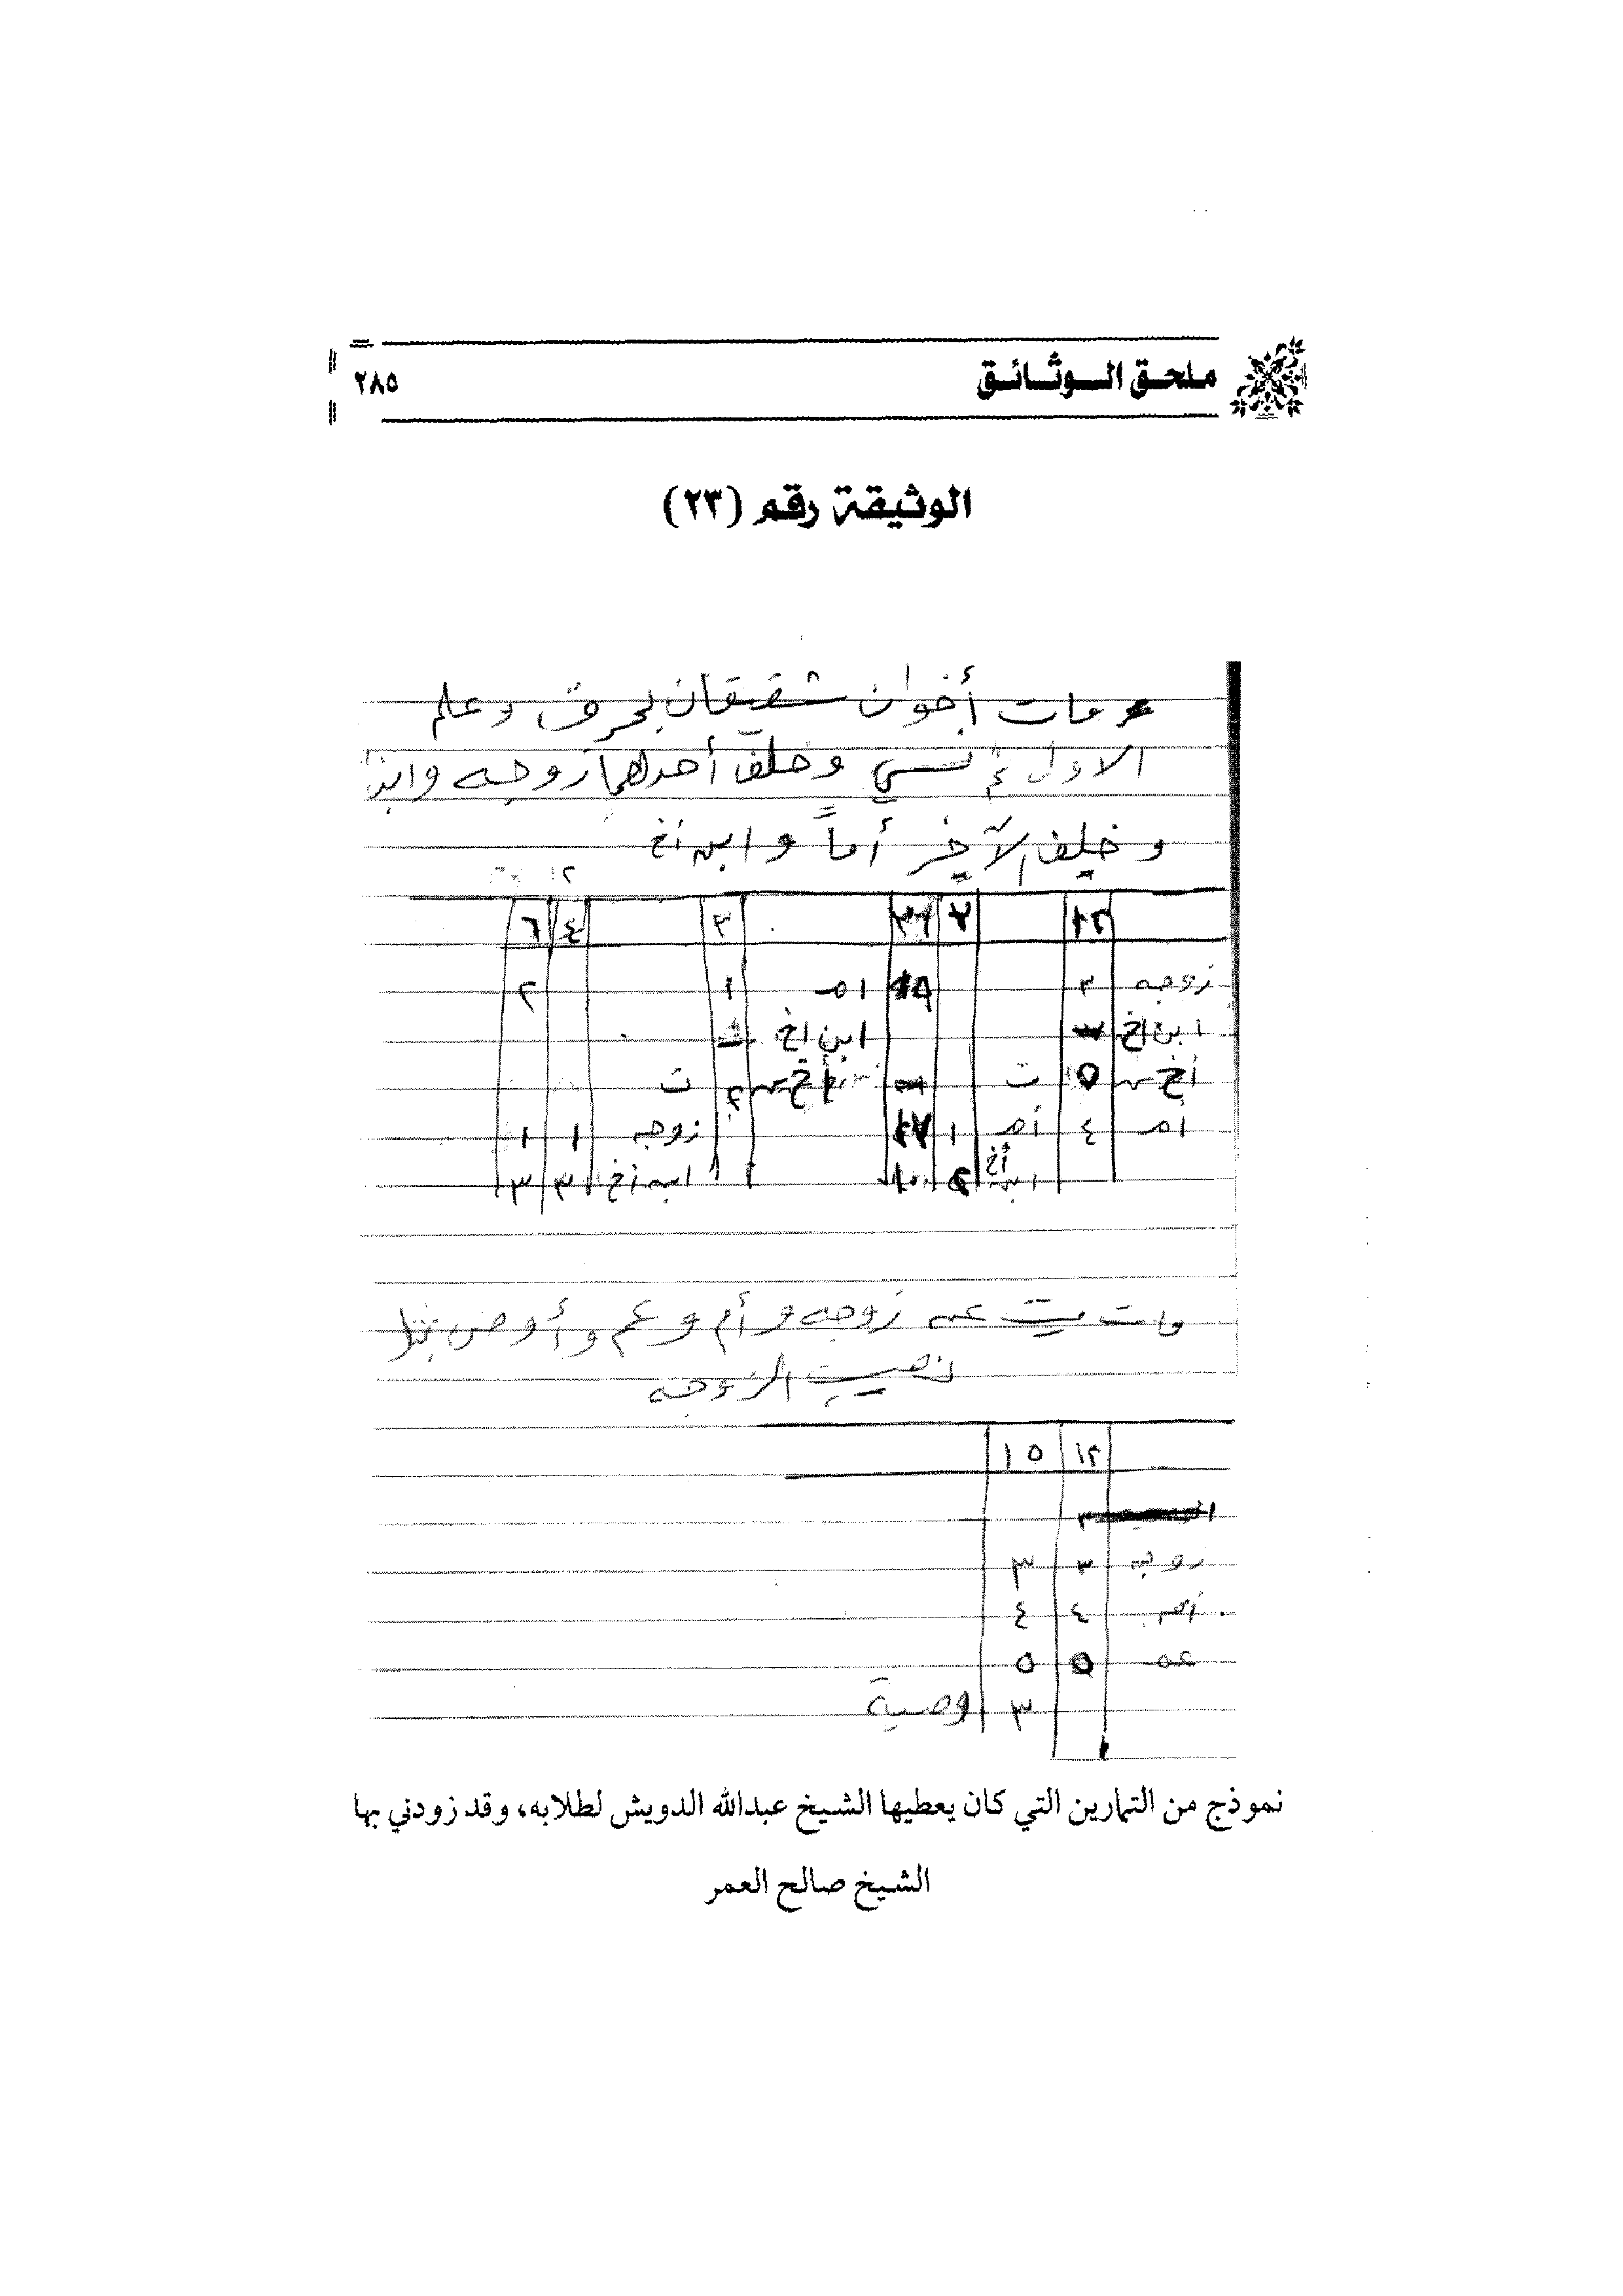 ملحق الوثائق ٢٨٥
الوثيقة رقم (٢٣)
مات أخوان شقيقان بحرق وعلم
الاول ثم نسي وخلف أحدهما زوجه وابن
وخلف الآخر أماً وابن أخ
١٢ ٣ ٤ ٦
زوجه ٣ ام ١ ٢
ابن اخ ابن اخ
أخ ٥ ت أخ ت
ام ٤ أم ١ زوجه ١ ١
ابن أخ ٢ ابن أخ ٣ ٣
مات ميت عن زوجه وأم وعم وأوصى بمثل
نصيب الزوجه
١٢ ١٥
٣
زوجه ٣ ٣
أم ٤ ٤
عم ٥ ٥
٣ وصية
نموذج من التمارين التي كان يعطيها الشيخ عبدالله الدويش لطلابه، وقد زودني بها
الشيخ صالح العمر